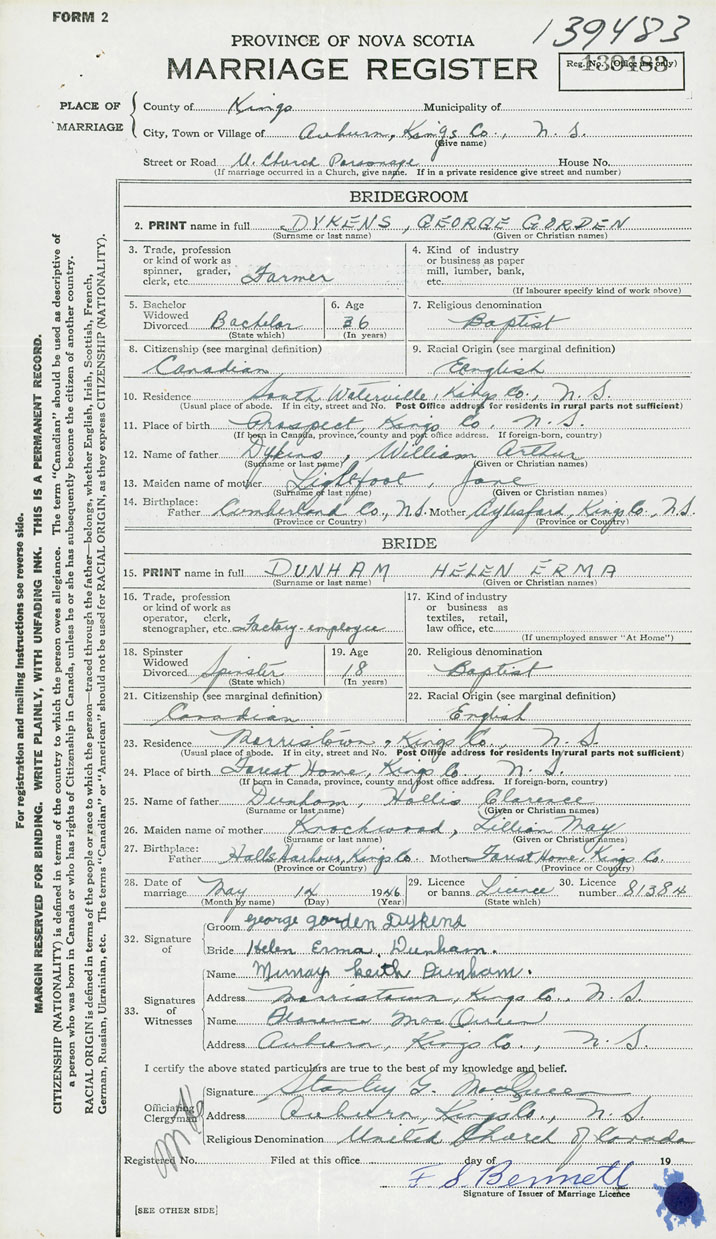 FORM 2
139483
PROVINCE OF NOVA SCOTIA
MARRIAGE REGISTER
Reg. No. (Office use only)
PLACE OF MARRIAGE
County of Kings Municipality of
City, Town or Village of Auburn, Kings Co., N. S.
(Give name)
Street or Road U. Church Parsonage House No.
(If marriage occurred in a Church, give name. If in a private residence give street and number)
BRIDEGROOM
2. PRINT name in full DYKENS, GEORGE GORDEN
(Surname or last name) (Given or Christian names)
3. Trade, profession or kind of work as spinner, grader, clerk, etc. Farmer
4. Kind of industry or business as paper mill, lumber, bank, etc.
(If labourer specify kind of work above)
5. Bachelor Widowed Divorced Bachelor (State which)
6. Age 36 (In years)
7. Religious denomination Baptist
8. Citizenship (see marginal definition) Canadian
9. Racial Origin (see marginal definition) English
10. Residence South Waterville, Kings Co., N. S.
(Usual place of abode. If in city, street and No. Post Office address for residents in rural parts not sufficient)
11. Place of birth Prospect, Kings Co. N. S.
(If born in Canada, province, county and post office address. If foreign-born, country)
12. Name of father Dykens, William Arthur
(Surname or last name) (Given or Christian names)
13. Maiden name of mother Lightfoot, Jane
(Surname or last name) (Given or Christian names)
14. Birthplace: Father Cumberland Co., N.S. Mother Aylesford, Kings Co., N.S.
(Province or Country) (Province or Country)
BRIDE
15. PRINT name in full DUNHAM HELEN ERMA
(Surname or last name) (Given or Christian names)
16. Trade, profession or kind of work as operator, clerk, stenographer, etc. Factory-employee
17. Kind of industry or business as textiles, retail, law office, etc.
(If unemployed answer "At Home")
18. Spinster Widowed Divorced Spinster (State which)
19. Age 18 (In years)
20. Religious denomination Baptist
21. Citizenship (see marginal definition) Canadian
22. Racial Origin (see marginal definition) English
23. Residence Morristown, Kings Co. N. S.
(Usual place of abode. If in city, street and No. Post Office address for residents in rural parts not sufficient)
24. Place of birth Forest Home, Kings Co., N. S.
(If born in Canada, province, county and post office address. If foreign-born, country)
25. Name of father Dunham, Hollis Clarence
(Surname or last name) (Given or Christian names)
26. Maiden name of mother Knockwood, Lillian May
(Surname or last name) (Given or Christian names)
27. Birthplace: Father Halls Harbour, Kings Co. Mother Forest Home, Kings Co.
(Province or Country) (Province or Country)
28. Date of marriage May 14 1946
(Month by name) (Day) (Year)
29. Licence or banns Licence (State which)
30. Licence number 81384
32. Signature of
Groom george gorden Dykens
Bride Helen Erma Dunham.
33. Signatures of Witnesses
Name Murray Keith Dunham.
Address Morristown, Kings Co., N. S.
Name Florence MacQueen
Address Auburn, Kings Co., N. S.
I certify the above stated particulars are true to the best of my knowledge and belief.
Officiating Clergyman
Signature Stanley G. MacQueen
Address Auburn, Kings Co., N. S.
Religious Denomination United Church of Canada
Registered No. Filed at this office day of 19
F. S. Bennett
Signature of Issuer of Marriage Licence
[SEE OTHER SIDE]
For registration and mailing instructions see reverse side.
MARGIN RESERVED FOR BINDING. WRITE PLAINLY, WITH UNFADING INK. THIS IS A PERMANENT RECORD.
CITIZENSHIP (NATIONALITY) is defined in terms of the country to which the person owes allegiance. The term "Canadian" should be used as descriptive of
a person who was born in Canada or who has rights of Citizenship in Canada, unless he or she has subsequently become the citizen of another country.
RACIAL ORIGIN is defined in terms of the people or race to which the person—traced through the father—belongs, whether English, Irish, Scottish, French,
German, Russian, Ukrainian, etc. The terms "Canadian" or "American" should not be used for RACIAL ORIGIN, as they express CITIZENSHIP (NATIONALITY).